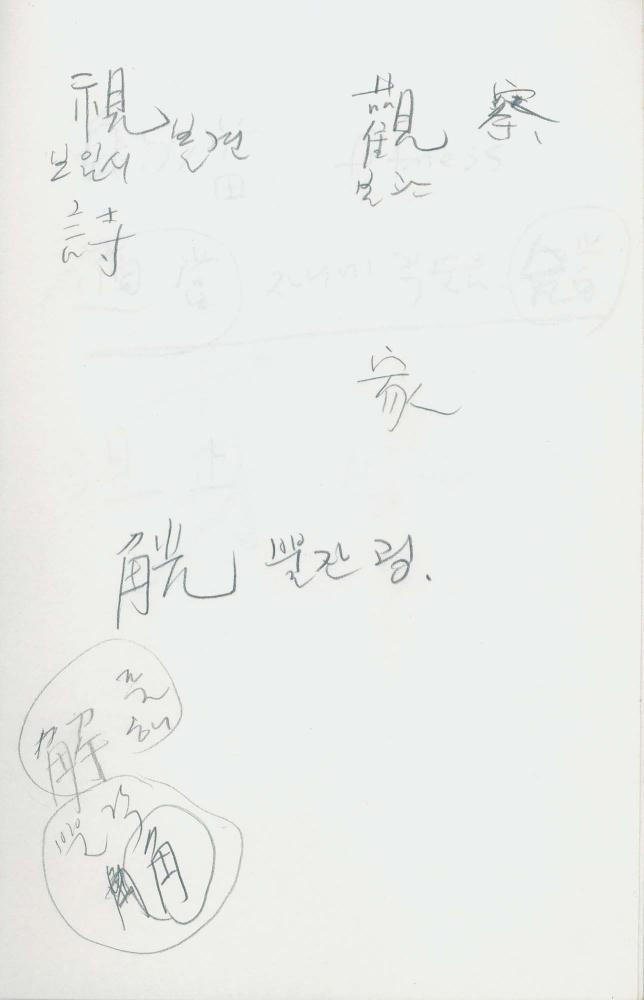 視 볼견 觀 察
보일시 볼관
詩
家
觥 뿔잔 굉.
풀
해
解
뿔 각
角